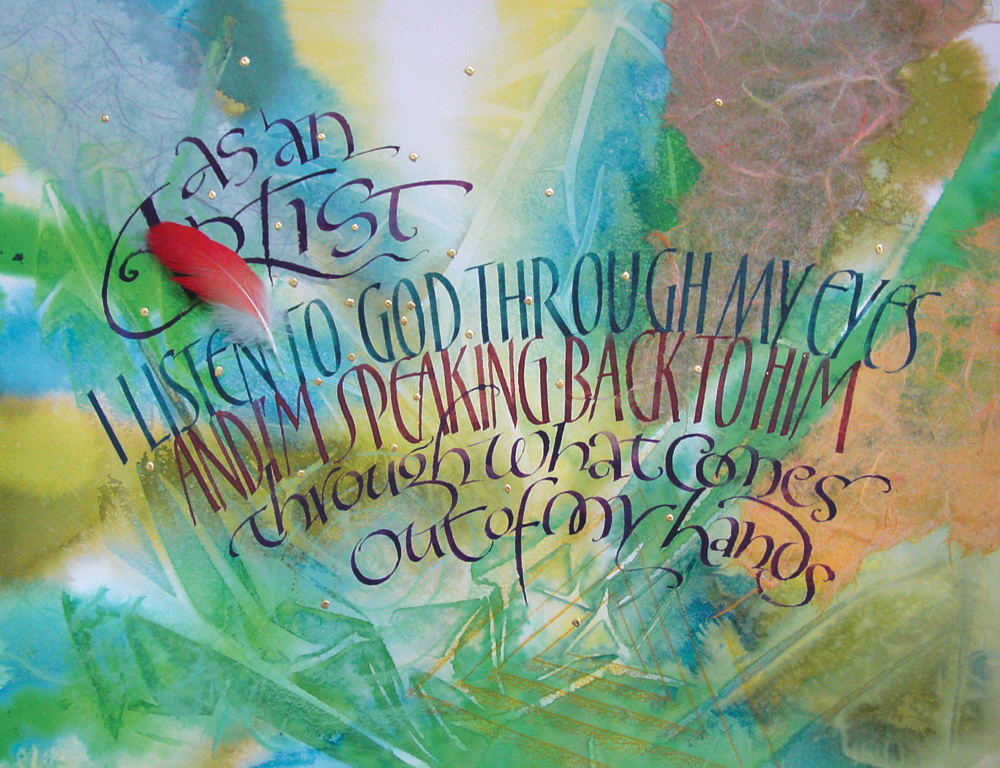 as an
Artist
I LISTEN TO GOD THROUGH MY EYES
AND I'M SPEAKING BACK TO HIM
through what comes
out of my hands